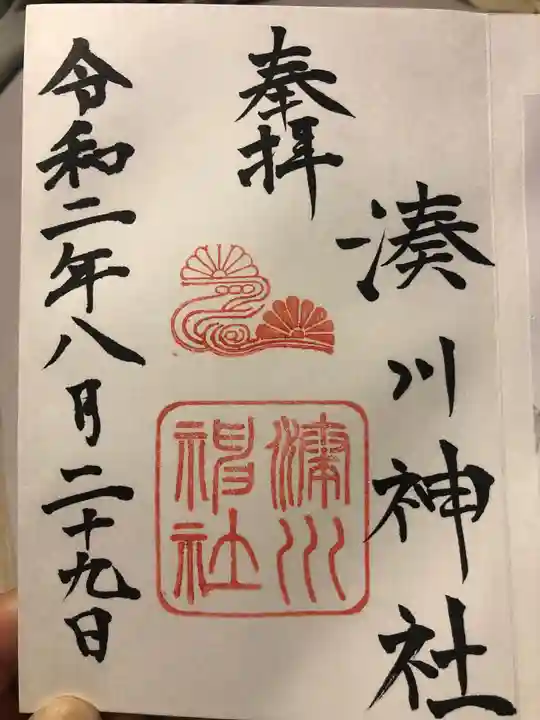 湊川神社
奉拝
湊川
神社
令和二年八月二十九日